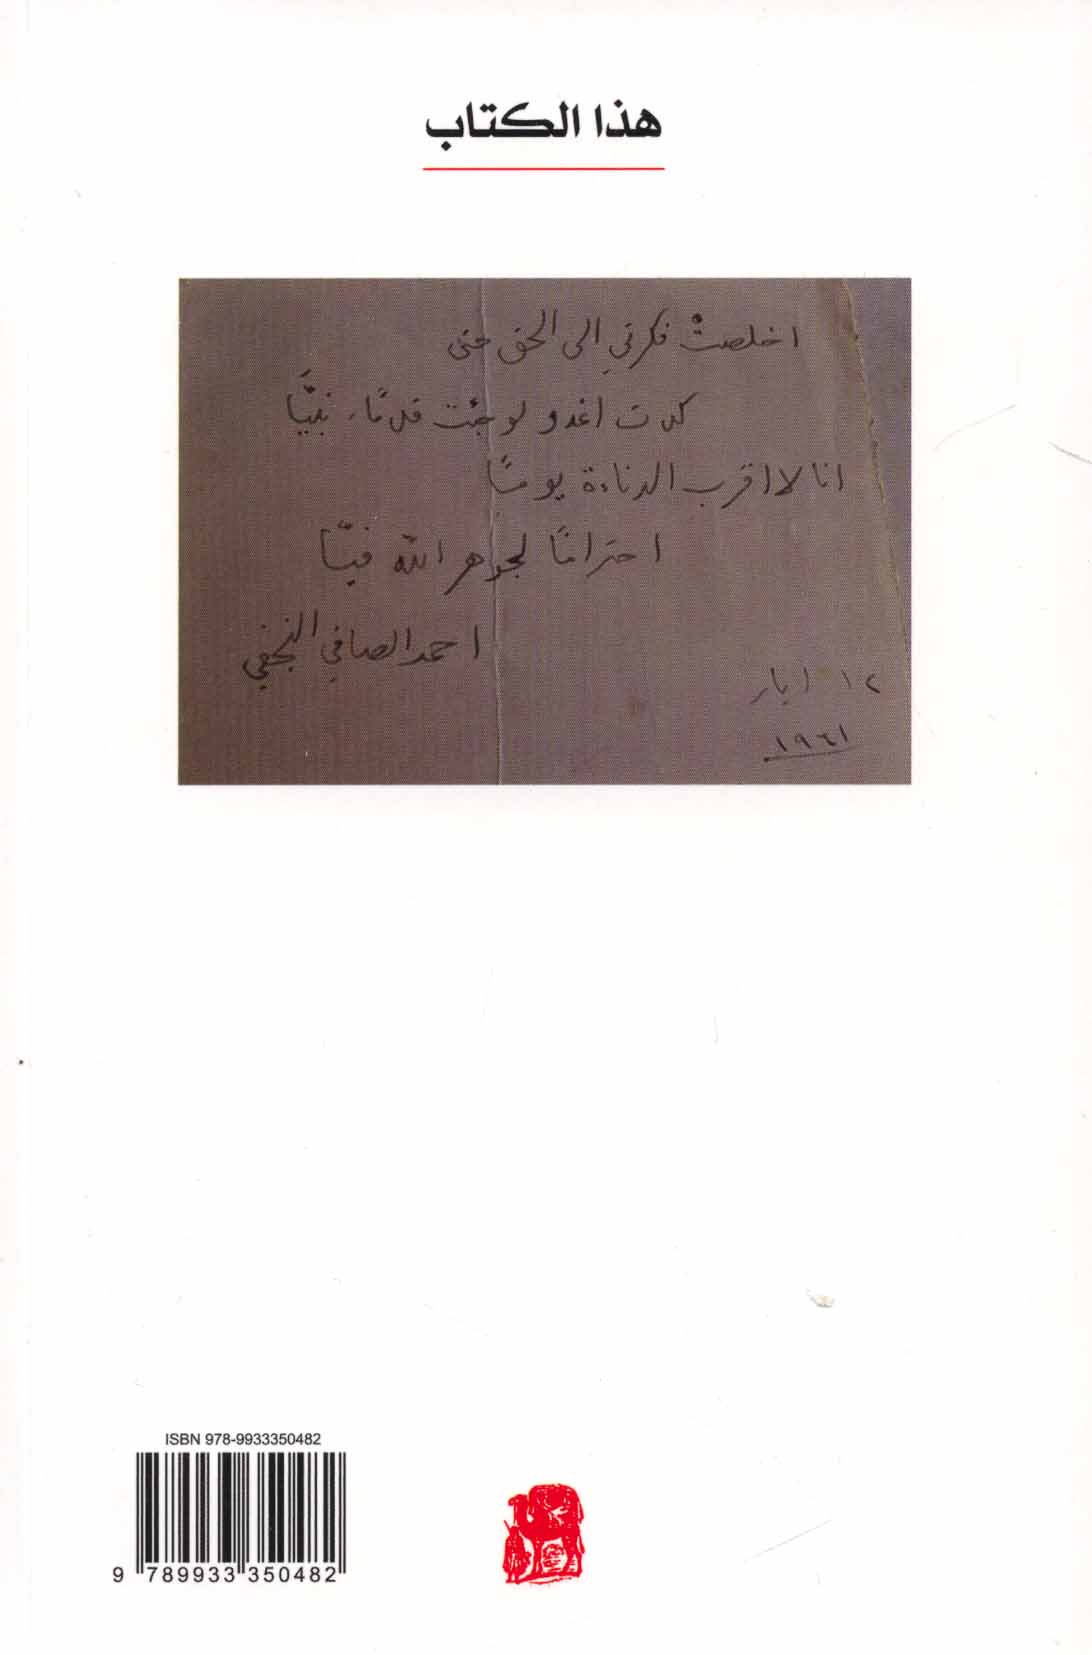 هذا الكتاب
اخلصتْ فكرتي الى الحق حتى
كدت اغدو لو جئت قدمًا، نبيَّا
انا لا اقرب الدناءة يومًا
احترامًا لجوهر الله فيَّا
احمد الصافي النجفي
١٢ ايار
١٩٦١
ISBN 978-9933350482
9 789933 350482